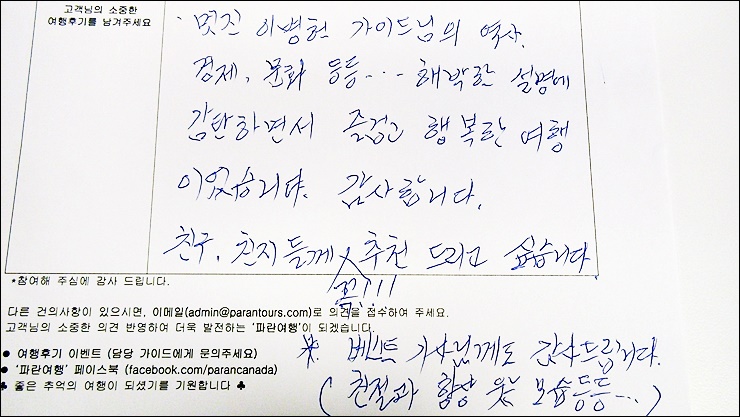 고객님의 소중한
여행후기를 남겨주세요
· 멋진 이병헌 가이드님의 역사,
경제, 문화 등등··· 해박한 설명에
감탄하면서 즐겁고 행복한 여행
이었습니다. 감사합니다.
친구, 친지들께 추천 드리고 싶습니다
꼭!!!
*참여해 주심에 감사 드립니다.
다른 건의사항이 있으시면, 이메일(admin@parantours.com)로 의견을 접수하여 주세요.
고객님의 소중한 의견 반영하여 더욱 발전하는 '파란여행'이 되겠습니다.
● 여행후기 이벤트 (담당 가이드에게 문의주세요)
● '파란여행' 페이스북 (facebook.com/parancanada)
♣ 좋은 추억의 여행이 되셨기를 기원합니다 ♣
※ 베스트 기사님께도 감사드립니다.
(친절과 항상 웃는 모습등등···)